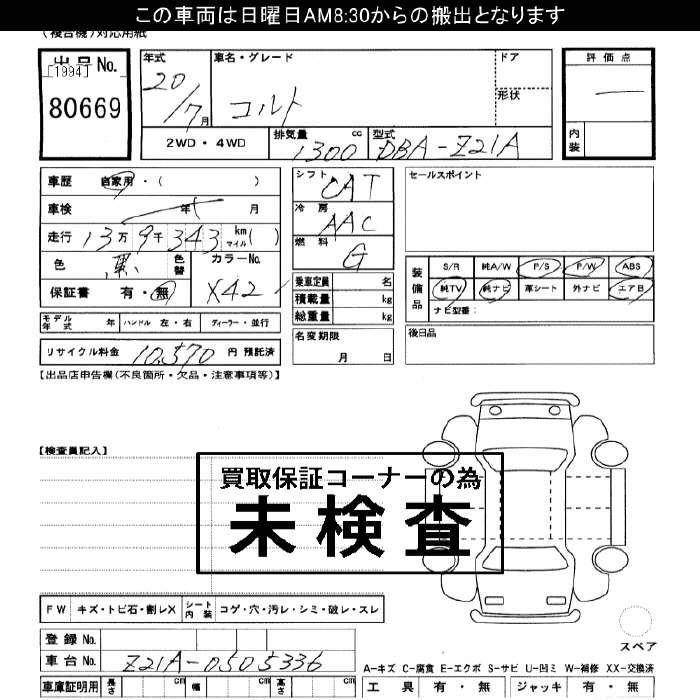 この車両は日曜日AM8:30からの搬出となります
(複合機)対応用紙
出品No.
[1994]
80669
年式
20/7月
車名・グレード
コルト
ドア
形状
2WD・4WD
排気量 cc
1300
型式
DBA-Z21A
評価点
内装
車歴 自家用・( )
車検 年 月
走行 13万9千343 km マイル( )
色 黒 色替
カラーNo.
X42
保証書 有・無
モデル年式 年 ハンドル 左・右 ディーラー・並行
リサイクル料金 10,570 円 預託済
シフト
CAT
冷房
AAC
燃料
G
乗車定員 名
積載量 kg
総重量 kg
名変期限
月 日
セールスポイント
装備品
S/R 純A/W P/S P/W ABS
純TV 純ナビ 革シート 外ナビ エアB
ナビ型番:
後日品
【出品店申告欄(不良箇所・欠品・注意事項等)】
【検査員記入】
買取保証コーナーの為
未検査
FW キズ・トビ石・割レX シート内装 コゲ・穴・汚レ・シミ・破レ・スレ
登録No.
車台No. Z21A-0505336
車庫証明用 長さ cm 幅 cm 高さ cm
スペア
A-キズ C-腐食 E-エクボ S-サビ U-凹ミ W-補修 XX-交換済
工具 有・無 ジャッキ 有・無